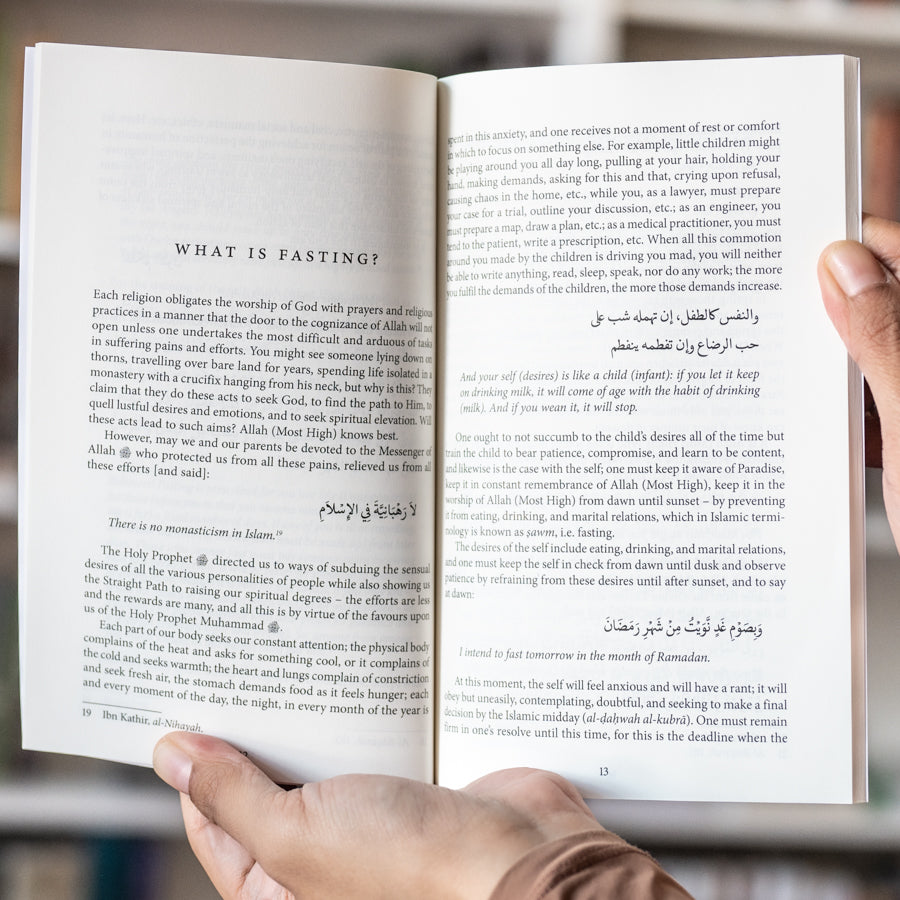 WHAT IS FASTING?
Each religion obligates the worship of God with prayers and religious
practices in a manner that the door to the cognizance of Allah will not
open unless one undertakes the most difficult and arduous of tasks
in suffering pains and efforts. You might see someone lying down on
thorns, travelling over bare land for years, spending life isolated in a
monastery with a crucifix hanging from his neck, but why is this? They
claim that they do these acts to seek God, to find the path to Him, to
quell lustful desires and emotions, and to seek spiritual elevation. Will
these acts lead to such aims? Allah (Most High) knows best.
However, may we and our parents be devoted to the Messenger of
Allah ﷺ who protected us from all these pains, relieved us from all
these efforts [and said]:
لاَ رَهْبَانِيَّةَ فِي الإِسْلاَمِ
There is no monasticism in Islam.19
The Holy Prophet ﷺ directed us to ways of subduing the sensual
desires of all the various personalities of people while also showing us
the Straight Path to raising our spiritual degrees – the efforts are less
and the rewards are many, and all this is by virtue of the favours upon
us of the Holy Prophet Muhammad ﷺ.
Each part of our body seeks our constant attention; the physical body
complains of the heat and asks for something cool, or it complains of
the cold and seeks warmth; the heart and lungs complain of constriction
and seek fresh air, the stomach demands food as it feels hunger; each
and every moment of the day, the night, in every month of the year is
19 Ibn Kathir, al-Nihayah.
spent in this anxiety, and one receives not a moment of rest or comfort
in which to focus on something else. For example, little children might
be playing around you all day long, pulling at your hair, holding your
hand, making demands, asking for this and that, crying upon refusal,
causing chaos in the home, etc., while you, as a lawyer, must prepare
your case for a trial, outline your discussion, etc.; as an engineer, you
must prepare a map, draw a plan, etc.; as a medical practitioner, you must
tend to the patient, write a prescription, etc. When all this commotion
around you made by the children is driving you mad, you will neither
be able to write anything, read, sleep, speak, nor do any work; the more
you fulfil the demands of the children, the more those demands increase.
والنفس كالطفل، إن تهمله شب على
حب الرضاع وإن تفطمه ينفطم
And your self (desires) is like a child (infant): if you let it keep
on drinking milk, it will come of age with the habit of drinking
(milk). And if you wean it, it will stop.
One ought to not succumb to the child's desires all of the time but
train the child to bear patience, compromise, and learn to be content,
and likewise is the case with the self; one must keep it aware of Paradise,
keep it in constant remembrance of Allah (Most High), keep it in the
worship of Allah (Most High) from dawn until sunset – by preventing
it from eating, drinking, and marital relations, which in Islamic termi-
nology is known as ṣawm, i.e. fasting.
The desires of the self include eating, drinking, and marital relations,
and one must keep the self in check from dawn until dusk and observe
patience by refraining from these desires until after sunset, and to say
at dawn:
وَبِصَوْمِ غَدٍ نَّوَيْتُ مِنْ شَهْرِ رَمَضَانَ
I intend to fast tomorrow in the month of Ramadan.
At this moment, the self will feel anxious and will have a rant; it will
obey but uneasily, contemplating, doubtful, and seeking to make a final
decision by the Islamic midday (al-ḍaḥwah al-kubrā). One must remain
firm in one's resolve until this time, for this is the deadline when the
13